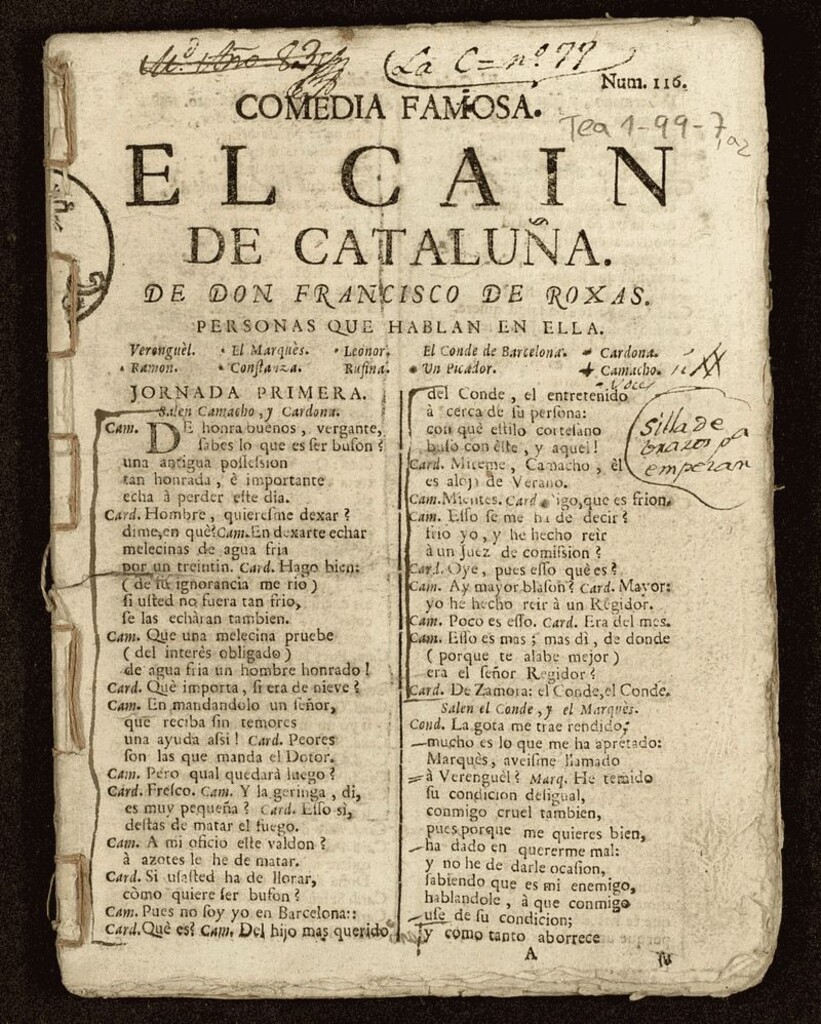 La C= nº 77
Num. 116.
COMEDIA FAMOSA.
Tea 1-99-7, a2
EL CAIN
DE CATALUÑA.
DE DON FRANCISCO DE ROXAS.
PERSONAS QUE HABLAN EN ELLA.
Verenguèl. El Marquès. Leonor. El Conde de Barcelona. Cardona.
Ramon. Constanza. Rufina. Un Picador. Camacho.
JORNADA PRIMERA.
Salen Camacho, y Cardona.
Cam. DE honra buenos, vergante,
sabes lo que es ser bufon?
una antigua possession
tan honrada, è importante
echa à perder este dia.
Card. Hombre, quieresme dexar?
dime, en què? Cam. En dexarte echar
melecinas de agua fria
por un treintin. Card. Hago bien:
(de su ignorancia me rio)
si usted no fuera tan frio,
se las echàran tambien.
Cam. Que una melecina pruebe
(del interès obligado)
de agua fria un hombre honrado!
Card. Què importa, si era de nieve?
Cam. En mandandolo un señor,
que reciba sin temores
una ayuda assi! Card. Peores
son las que manda el Dotor.
Cam. Pero qual quedarà luego?
Card. Fresco. Cam. Y la geringa, di,
es muy pequeña? Card. Esso sì,
destas de matar el fuego.
Cam. A mi oficio este valdon?
à azotes le he de matar.
Card. Si usasted ha de llorar,
còmo quiere ser bufon?
Cam. Pues no soy yo en Barcelona::
Card. Què es? Cam. Del hijo mas querido
del Conde, el entretenido
à cerca de su persona:
con què estilo cortesano
bufo con èste, y aquel!
Card. Mireme, Camacho, èl
es aloja de Verano.
Cam. Mientes. Card. Digo, que es frion.
Cam. Esso se me ha de decir?
frio yo, y he hecho reir
à un Juez de comission?
Card. Oye, pues esso què es?
Cam. Ay mayor blason? Card. Mayor:
yo he hecho reir à un Regidor.
Cam. Poco es esso. Card. Era del mes.
Cam. Esso es mas; mas dì, de donde
(porque te alabe mejor)
era el señor Regidor?
Card. De Zamora: el Conde, el Conde.
Salen el Conde, y el Marquès.
Cond. La gota me trae rendido;
mucho es lo que me ha apretado:
Marquès, aveisme llamado
à Verenguèl? Marq. He temido
su condicion desigual,
conmigo cruel tambien,
pues porque me quieres bien,
ha dado en quererme mal:
y no he de darle ocasion,
sabiendo que es mi enemigo,
hablandole, à que conmigo
use de su condicion;
y como tanto aborrece
A
silla de
brazos pa
empezar